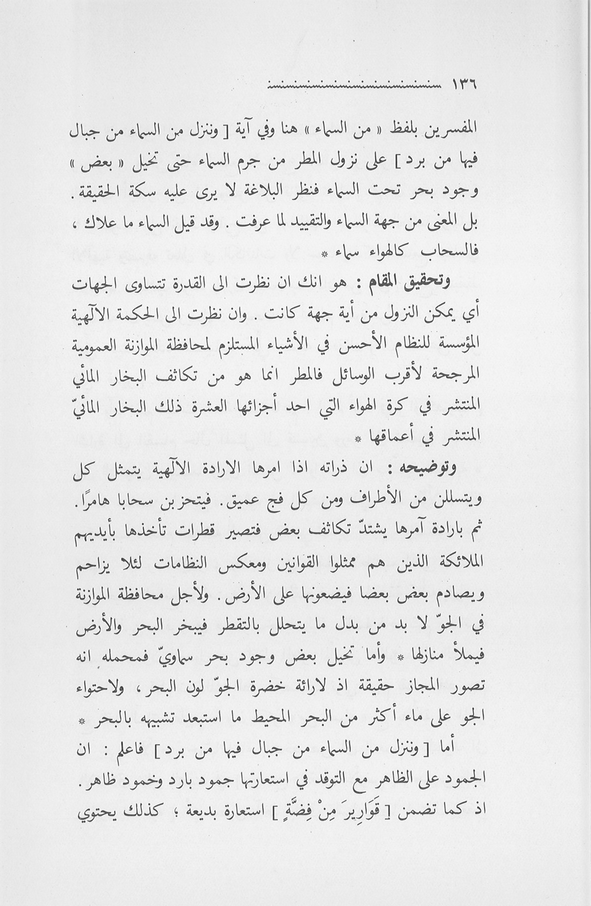 ١٣٦
المفسرين بلفظ « من السماء » هنا وفي آية [ وننزل من السماء من جبال
فيها من برد ] على نزول المطر من جرم السماء حتى تخيل « بعض »
وجود بحر تحت السماء فنظر البلاغة لا يرى عليه سكة الحقيقة .
بل المعنى من جهة السماء والتقييد لما عرفت . وقد قيل السماء ما علاك ،
فالسحاب كالهواء سماء *
وتحقيق المقام : هو انك ان نظرت الى القدرة تتساوى الجهات
أي يمكن النزول من أية جهة كانت . وان نظرت الى الحكمة الآلهية
المؤسسة للنظام الأحسن في الأشياء المستلزم لمحافظة الموازنة العمومية
المرجحة لأقرب الوسائل فالمطر انما هو من تكاثف البخار المائي
المنتشر في كرة الهواء التي احد أجزائها العشرة ذلك البخار المائيّ
المنتشر في أعماقها *
وتوضيحه : ان ذراته اذا امرها الارادة الآلهية يتمثل كل
ويتسللن من الأطراف ومن كل فج عميق . فيتحزبن سحابا هامرًا .
ثم بارادة آمرها يشتدّ تكاثف بعض فتصير قطرات تأخذها بأيديهم
الملائكة الذين هم ممثلوا القوانين ومعكس النظامات لئلا يزاحم
ويصادم بعض بعضا فيضعونها على الأرض . ولأجل محافظة الموازنة
في الجوّ لا بد من بدل ما يتحلل بالتقطر فيبخر البحر والأرض
فيملأ منازلها * وأما تخيل بعض وجود بحر سماويّ فمحمله انه
تصور المجاز حقيقة اذ لارائة خضرة الجوّ لون البحر ، ولاحتواء
الجو على ماء أكثر من البحر المحيط ما استبعد تشبيهه بالبحر *
أما [ وننزل من السماء من جبال فيها من برد ] فاعلم : ان
الجمود على الظاهر مع التوقد في استعارتها جمود بارد وخمود ظاهر .
اذ كما تضمن [ قَوَارِيرَ مِنْ فِضَّةٍ ] استعارة بديعة ؛ كذلك يحتوي